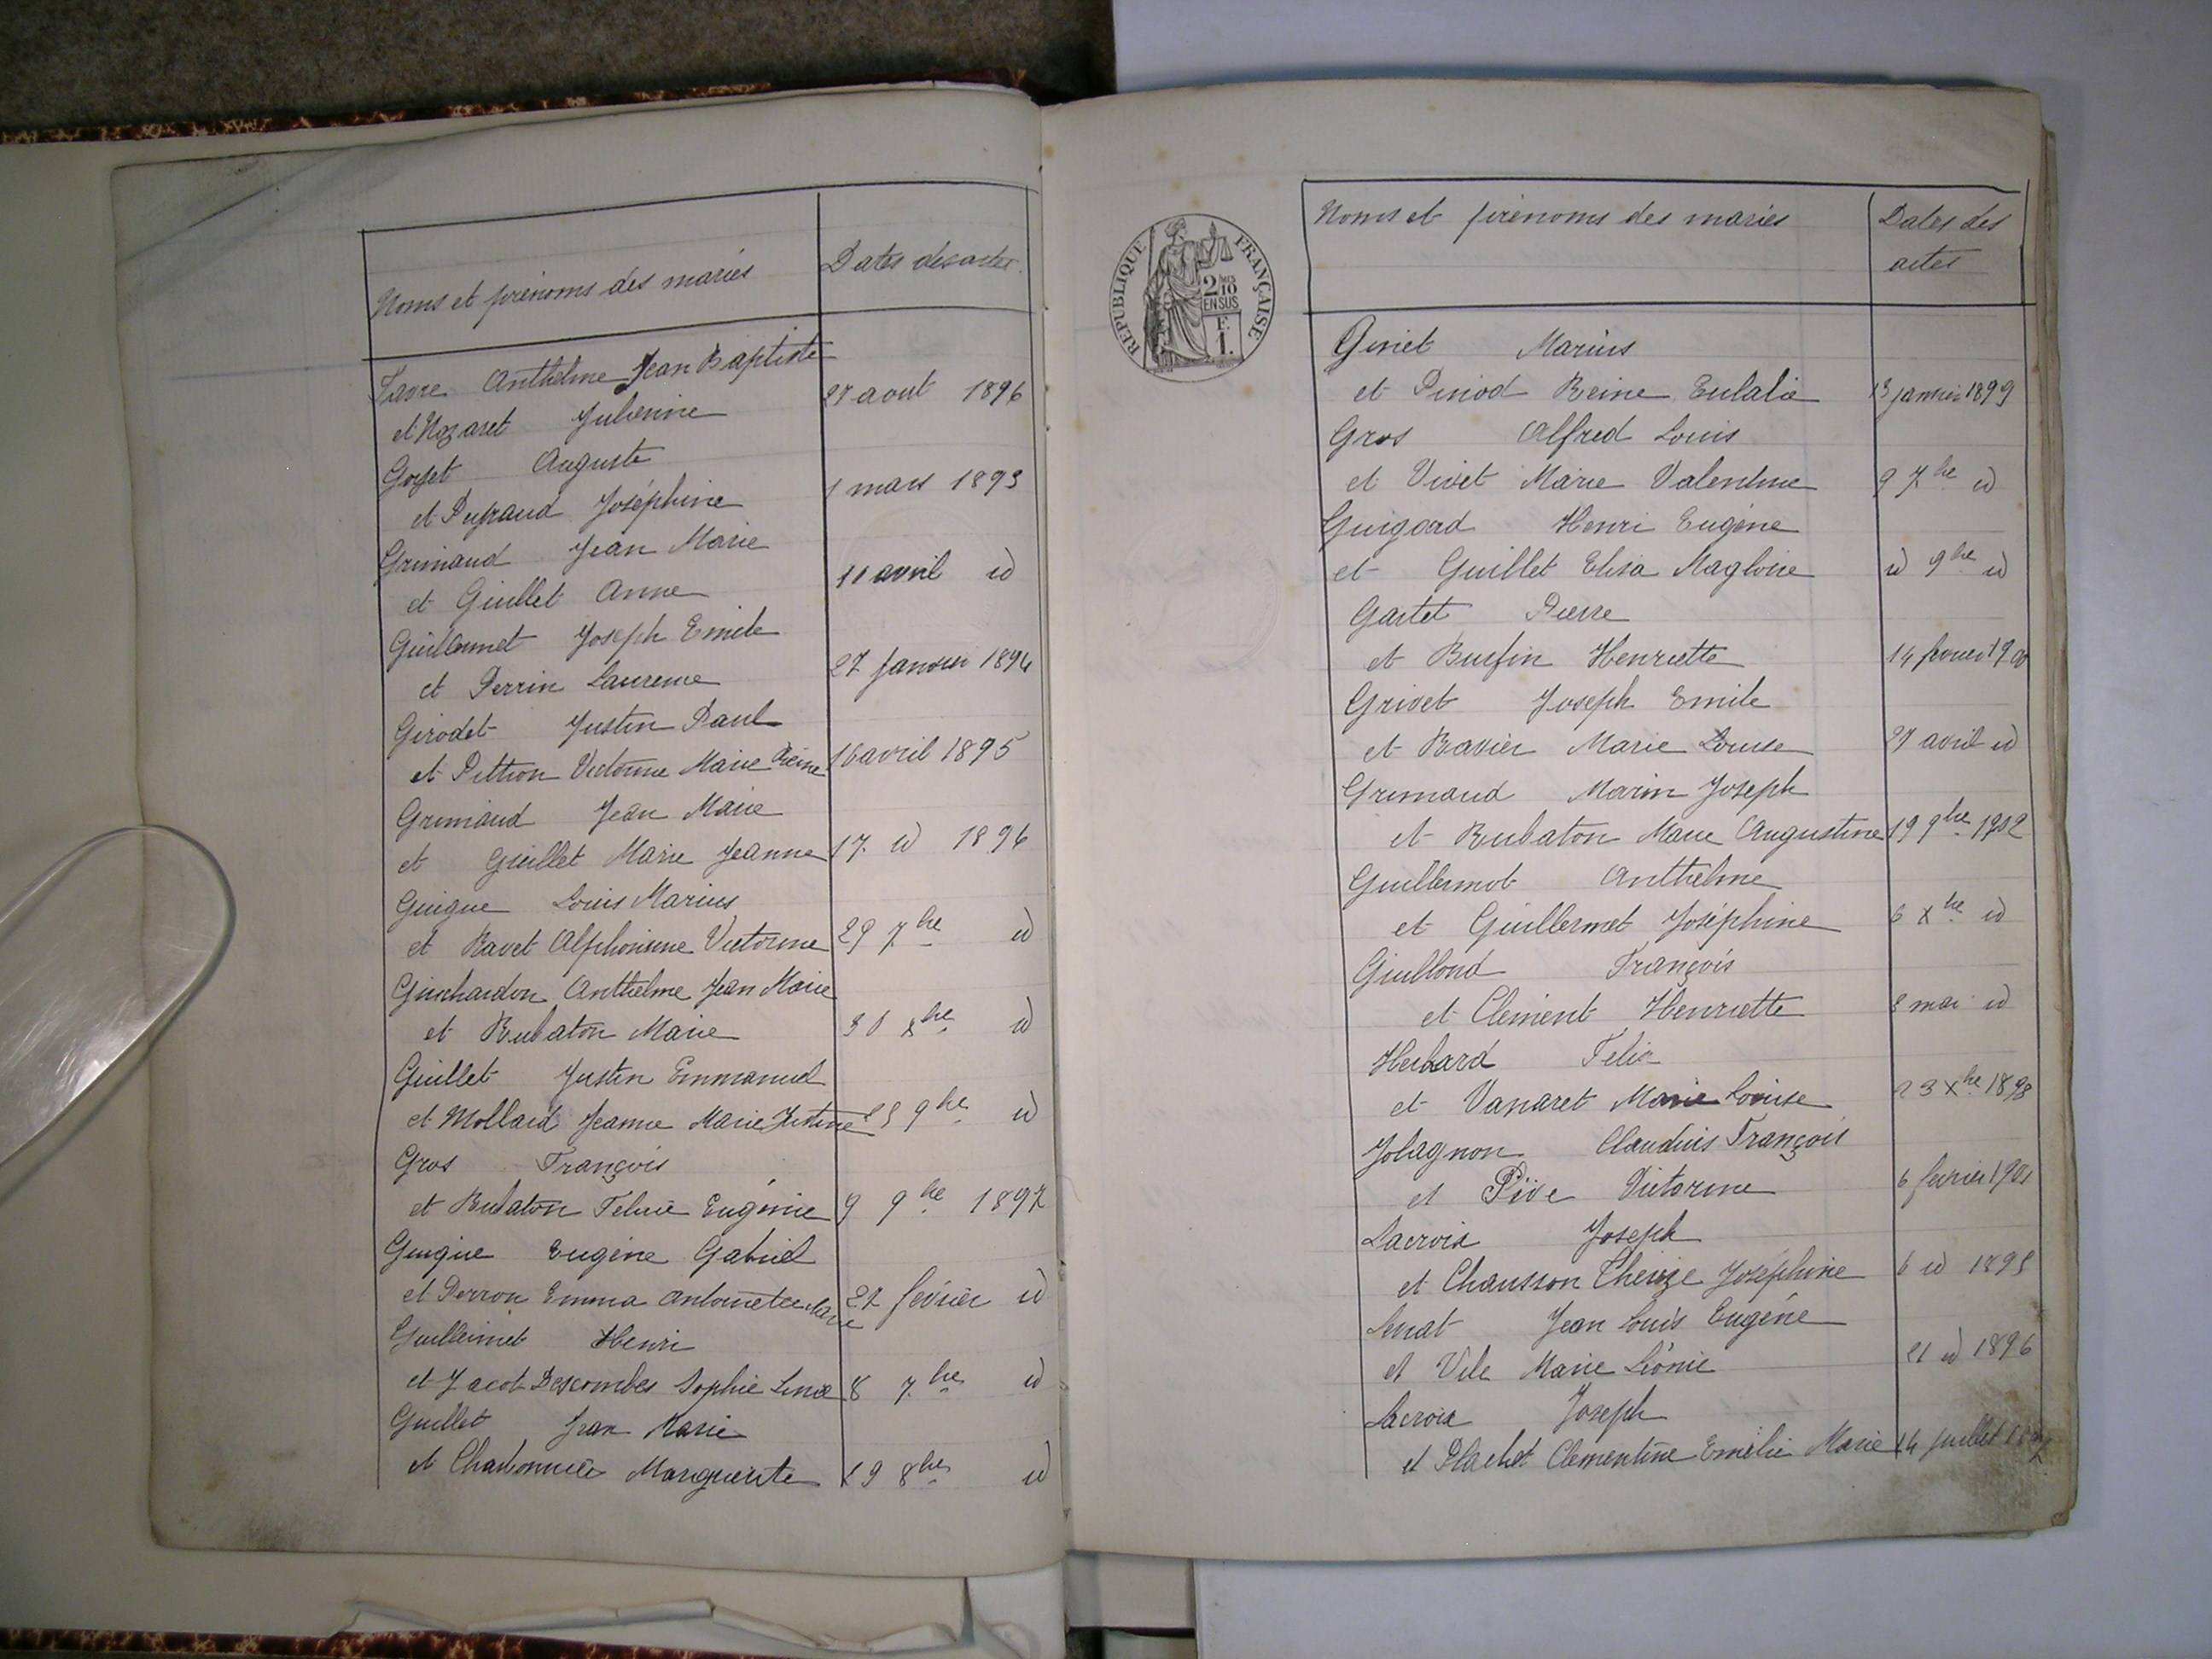 Noms et prénoms des mariés
Dates des actes
Favre Anthelme Jean Baptiste
et Nozaret Julienne 27 aout 1896
Goyet Auguste
et Dufraud Joséphine 1 mars 1893
Grimaud Jean Marie
et Guillet Anne 11 avril id
Guillermet Joseph Emile
et Perrin Laurence 27 janvier 1894
Girodet Justin Paul
et Pittion Victorine Marie Reine 16 avril 1895
Grimaud Jean Marie
et Guillet Marie Jeanne 17 id 1896
Guigue Louis Marius
et Ravet Alphonsine Victorine 29 7bre id
Guichardon Anthelme Jean Marie
et Rubaton Marie 30 xbre id
Guillet Justin Emmanuel
et Mollard Jeanne Marie Justine 25 9bre id
Gros François
et Rubaton Félicie Eugénie 9 9bre 1897
Guigue Eugène Gabriel
et Perron Emma Antoinette Marie 27 février id
Guillermet Henri
et Jacot Descombes Sophie Lina 8 7bre id
Guillet Jean Marie
et Charbonnier Marguerite 19 8bre id
RÉPUBLIQUE FRANÇAISE
2/10
EN SUS
F.
1.
Noms et prénoms des mariés
Dates des
actes
Ginet Marius
et Puriod Reine Eulalie 13 janvier 1899
Gros Alfred Louis
et Vivet Marie Valentine 9 7bre id
Guigard Henri Eugène
et Guillet Elisa Magloire id 9bre id
Gartet Pierre
et Burfin Henriette 14 février 1900
Grivet Joseph Emile
et Ravier Marie Louise 27 avril id
Grimaud Marin Joseph
et Rubaton Marie Augustine 19 9bre 1902
Guillermot Anthelme
et Guillermet Joséphine 6 xbre id
Guilloud François
et Clément Henriette 8 mai id
Herbard Félix
et Vanaret Marie Louise 23 xbre 1898
Jolagnon Claudius François
et Pive Victorine 6 février 1901
Lacroix Joseph
et Chausson Thérèze Joséphine 6 id 1895
Serrat Jean Louis Eugène
et Vile Marie Léonie 21 id 1896
Lacroix Joseph
et Plachet Clémentine Emélie Marie 14 juillet